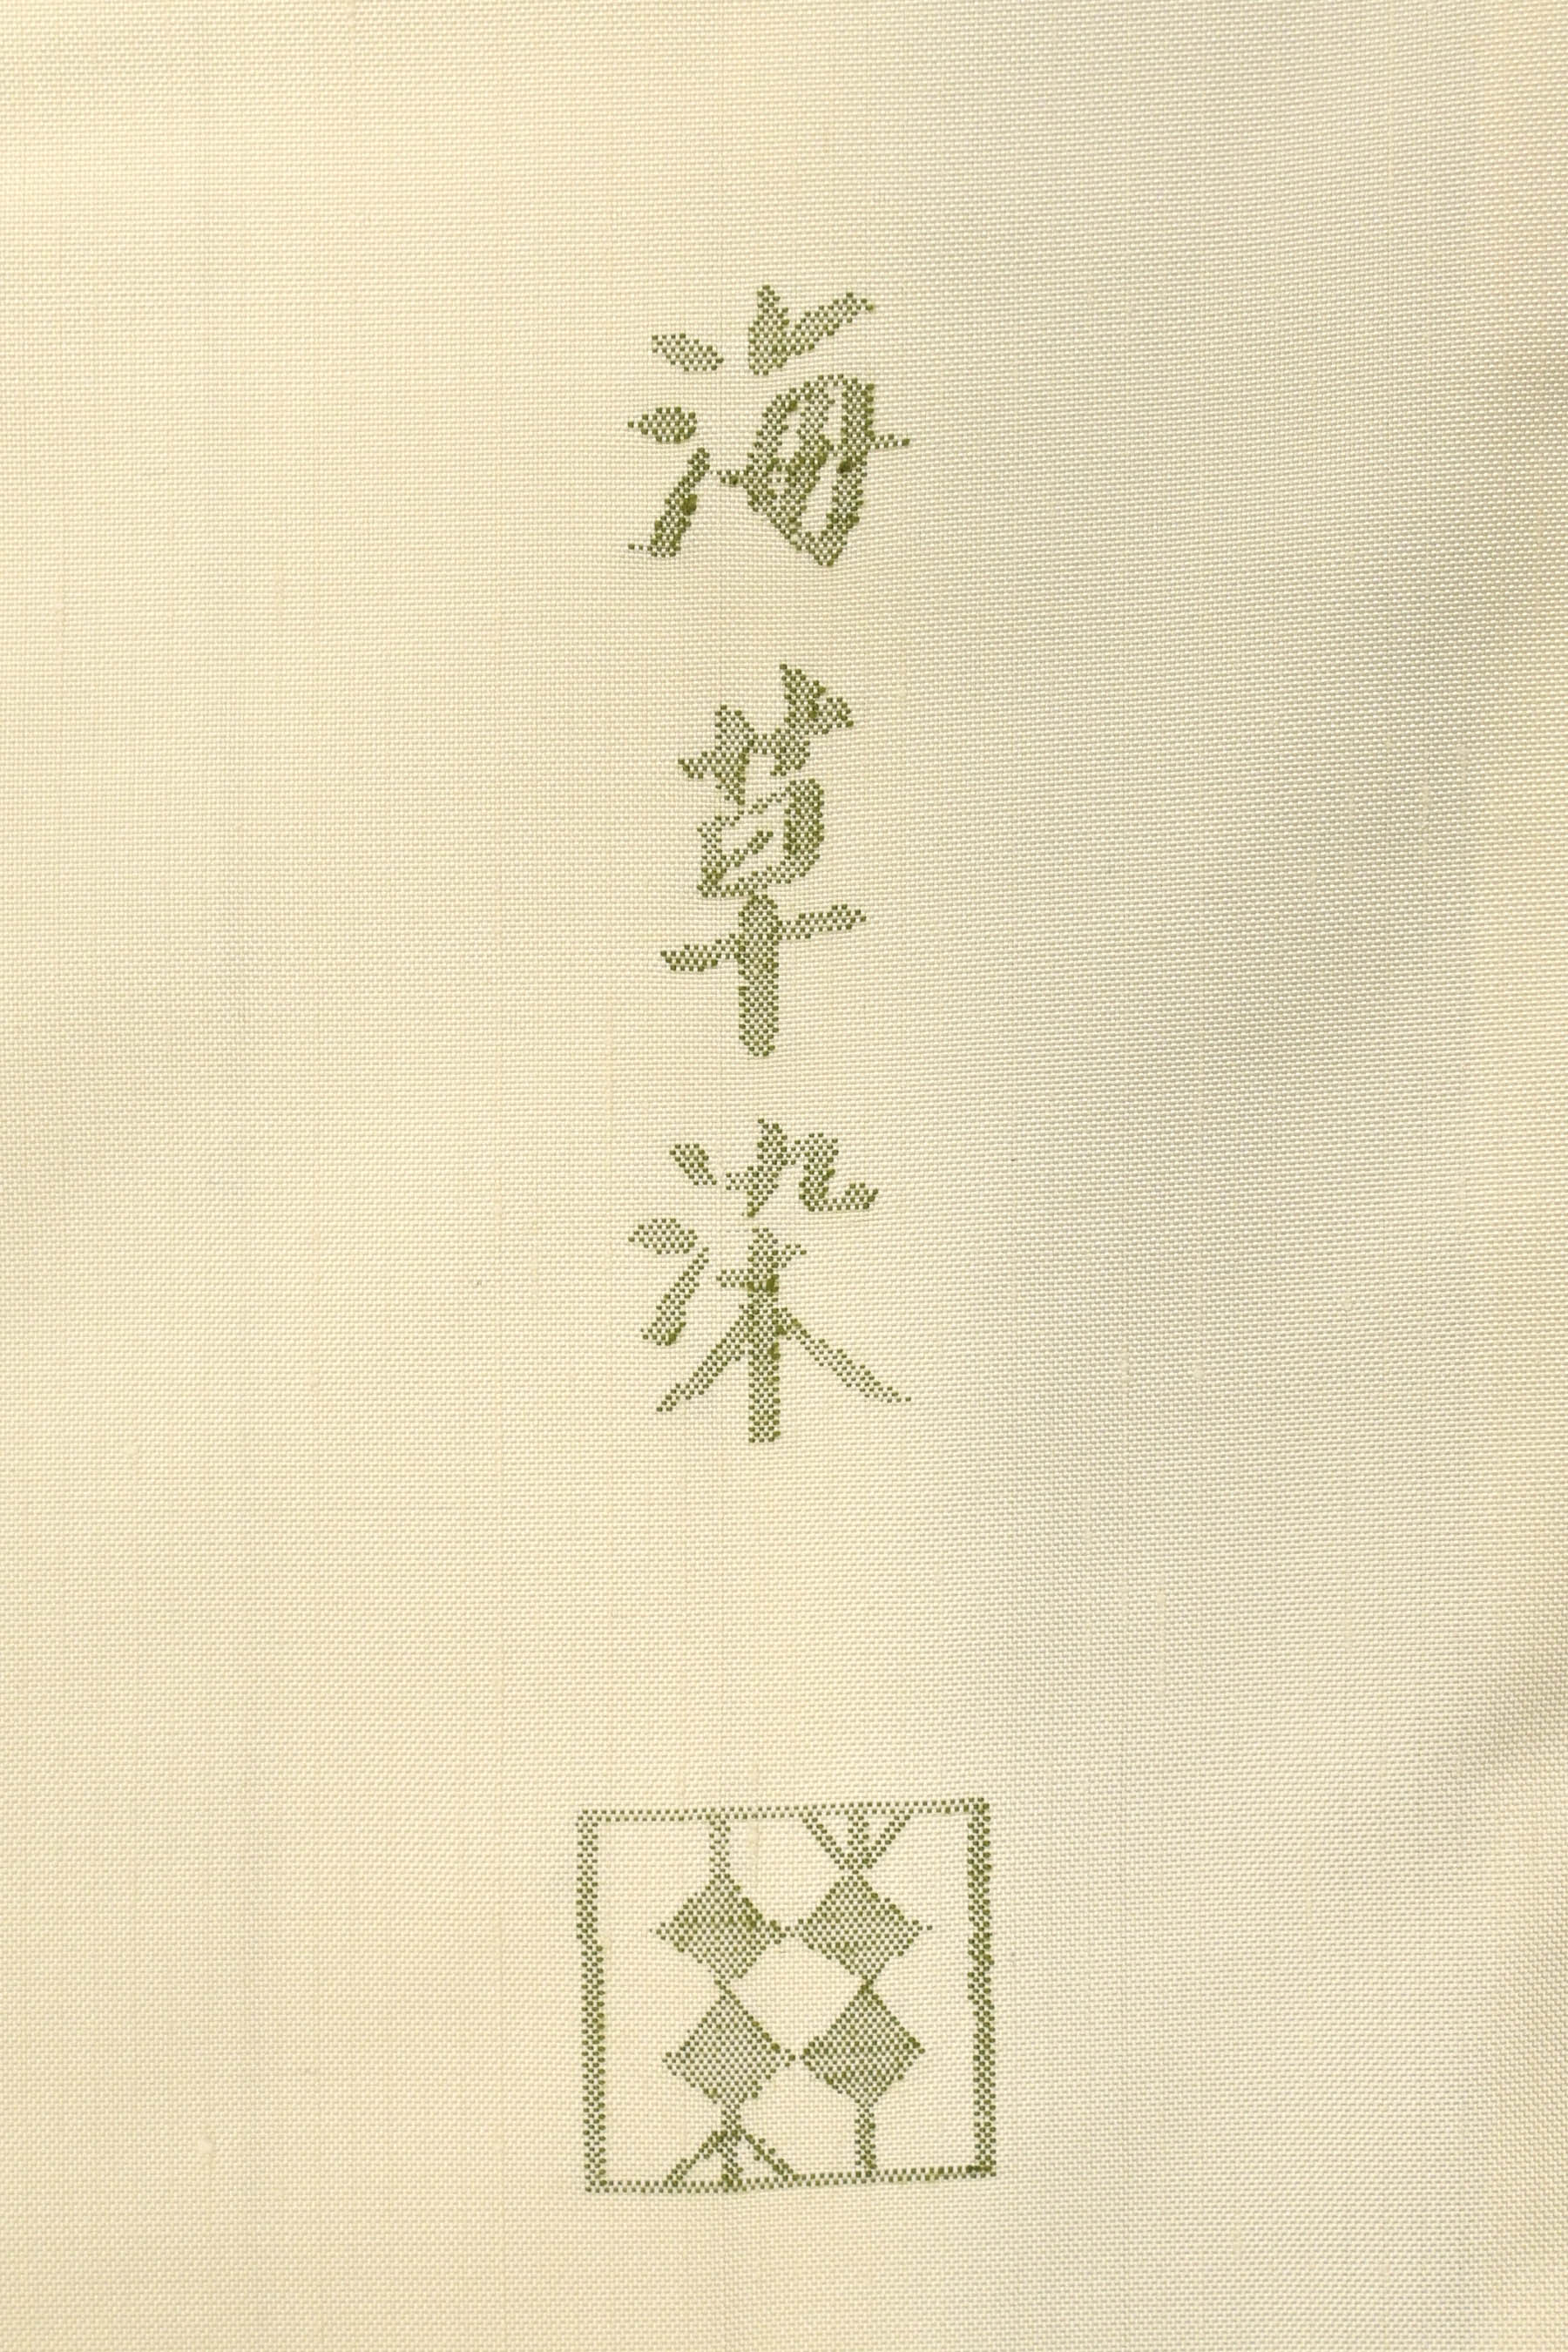 海草染